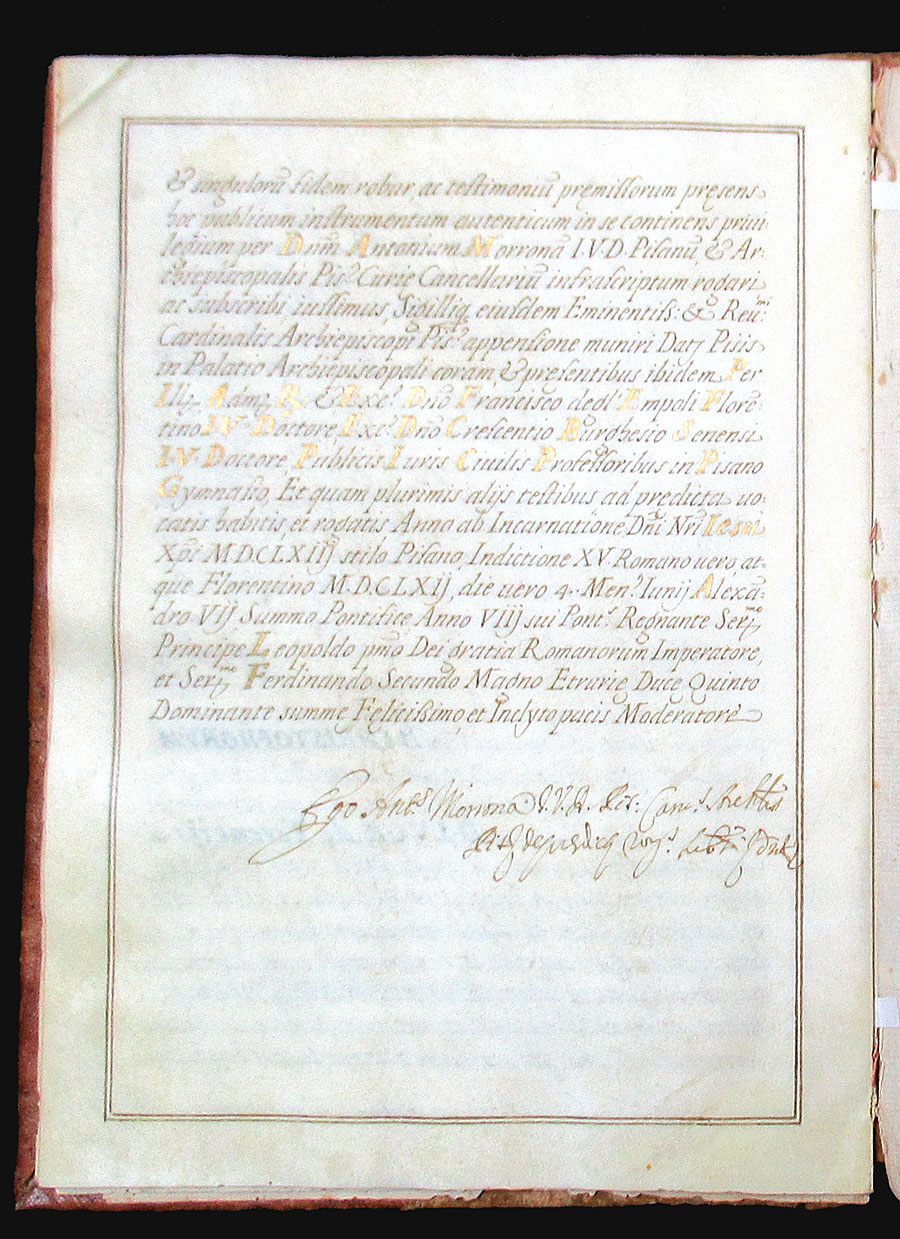 & singulorũ fidem robur, ac testimoniũ pręmissorum pręsens
hoc publicum instrumentum autenticum in se continens privi
legium per Dnm̃ Antonium Morronã I·V·D· Pisanũ, & Ar-
chiepiscopalis Pisę Curie Cancellariũ infrascriptum rogari
ac subscribi iussimus, Sigilliq, eiusdem Eminentiss: & Reu:mi
Cardinalis Archiepiscopi Pis: appensione muniri Dat, Pisis
in Palatio Archiepiscopali coram, & presentibus ibidem Per
Ill, Adm, R, & Exc: Dno Francisco de gl' Empoli Flore-
tino I·V· Doctore, Exc: Dno Crescentio Burghesio Senensi
I·V· Doctore, Publicis Iuris Civilis Professoribus in Pisano
Gymnasio, Et quam plurimis alijs testibus ad predicta uo-
catis habitis, et rogatis Anno ab Incarnatione Dñi Nrĩ Iesu
Xpi M·D·CLXIIJ stilo Pisano, Indictione XV· Romano uero, at-
que Florentino M·D·CLXIJ, die uero 4· Men: Iunij Alexã
dro VIJ Summo Pontifice Anno VIIJ sui Pont: Regnante Sermo
Principe Leopoldo pmo Dei gratia Romanorum Imperatore,
et Sermo Ferdinando Secundo Magno Etrurię Duce Quinto
Dominante summe Felicissimo, et Inclyto pacis Moderatore
Ego Ants Morrona I.V.D. Canc